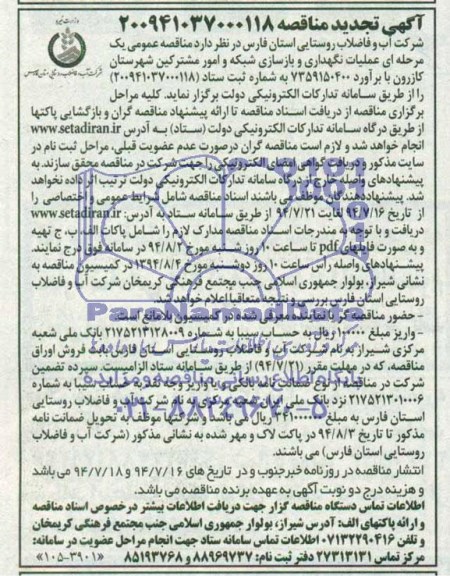 آگهی تجدید مناقصه ۲۰۰۹۴۱۰۳۷۰۰۰۱۱۸
شرکت آب و فاضلاب روستایی استان فارس در نظر دارد مناقصه عمومی یک
مرحله ای عملیات نگهداری و بازسازی شبکه و امور مشترکین شهرستان
کازرون با برآورد ۷۳۵۹۱۵۰۴۰۰ به شماره ثبت ستاد (۲۰۰۹۴۱۰۳۷۰۰۰۱۱۸)
را از طریق سامانه تدارکات الکترونیکی دولت برگزار نماید. کلیه مراحل
برگزاری مناقصه از دریافت اسناد مناقصه تا ارائه پیشنهاد مناقصه گران و بازگشایی پاکتها
از طریق درگاه سامانه تدارکات الکترونیکی دولت (ستاد) به آدرس www.setadiran.ir
انجام خواهد شد و لازم است مناقصه گران درصورت عدم عضویت قبلی، مراحل ثبت نام در
سایت مذکور و دریافت گواهی امضای الکترونیکی را جهت شرکت در مناقصه محقق سازند. به
پیشنهادهای واصله خارج از درگاه سامانه تدارکات الکترونیکی دولت ترتیب اثر داده نخواهد
شد. پیشنهاددهندگان موظف می باشند اسناد مناقصه شامل شرایط عمومی و اختصاصی را
از تاریخ ۹۴/۷/۱۶ لغایت ۹۴/۷/۲۱ از طریق سامانه ستاد به آدرس: www.setadiran.ir
دریافت و با توجه به مندرجات اسناد مناقصه مدارک لازم را شامل پاکات الف، ب، ج تهیه
و به صورت فایلهای pdf تا ساعت ۱۰ روز شنبه مورخ ۹۴/۸/۲ در سامانه فوق درج نمایند.
پیشنهادهای واصله رأس ساعت ۱۰ روز دوشنبه مورخ ۱۳۹۴/۸/۴ در کمیسیون مناقصه به
نشانی شیراز، بولوار جمهوری اسلامی جنب مجتمع فرهنگی کریمخان شرکت آب و فاضلاب
روستایی استان فارس بررسی و نتیجه متعاقبا اعلام خواهد شد.
- حضور مناقصه گر یا نماینده معرفی شده در کمیسیون بلامانع است.
- واریز مبلغ ریال به حساب سیبا به شماره ۲۱۷۵۲۱۳۱۲۸۰۰۹ بانک ملی شعبه
مرکزی شیراز به نام شرکت آب و فاضلاب روستایی استان فارس بابت فروش اوراق
مناقصه، که در مهلت مقرر (۹۴/۷/۲۱) از طریق سامانه ستاد الزامیست. سپرده تضمین
شرکت در مناقصه از نوع ضمانت نامه بانکی یا واریز وجه نقد به حساب سیبا به شماره
۲۱۷۵۲۱۳۰۱۰۰۶ نزد بانک ملی ایران شعبه مرکزی به نام شرکت آب و فاضلاب روستایی
استان فارس به مبلغ ریال می باشد و شرکتها موظف به تحویل ضمانت نامه
مذکور تا تاریخ ۹۴/۸/۳ در پاکت لاک و مهر شده به نشانی مذکور (شرکت آب و فاضلاب
روستایی استان فارس) می باشند.
انتشار مناقصه در روزنامه خبرجنوب و در تاریخ های ۹۴/۷/۱۶ و ۹۴/۷/۱۸ می باشد
و هزینه درج دو نوبت آگهی به عهده برنده مناقصه می باشد.
اطلاعات تماس دستگاه مناقصه گزار جهت دریافت اطلاعات بیشتر درخصوص اسناد مناقصه
و ارائه پاکتهای الف: آدرس شیراز، بولوار جمهوری اسلامی جنب مجتمع فرهنگی کریمخان
و تلفن ۰۷۱۳۲۲۹۰۴۱۶ اطلاعات تماس سامانه ستاد جهت انجام مراحل عضویت در سامانه:
مرکز تماس ۲۷۳۱۳۱۳۱ دفتر ثبت نام: ۸۸۹۶۹۷۳۷ و ۸۵۱۹۳۷۶۸
«۱۰۵-۳۹۰۱»
۰۲۱-۸۸۳۴۹۶۷۰-۵